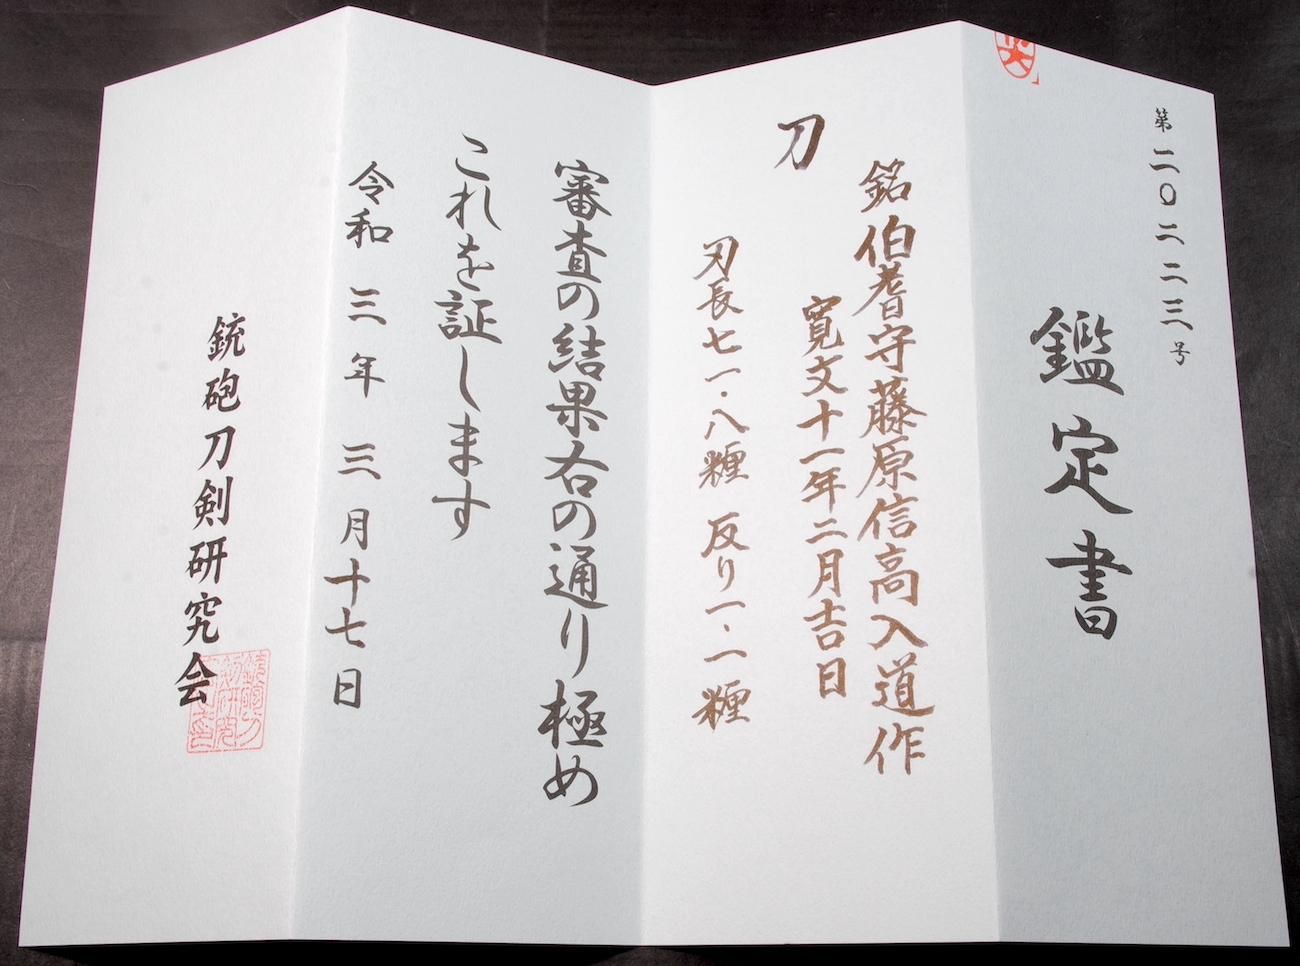 第二〇二二三号
鑑定書
銘伯耆守藤原信高入道作
寛文十一年二月吉日
刀
刃長七一・八糎 反り一・一糎
審査の結果右の通り極め
これを証します
令和 三年 三月十七日
銃砲刀剣研究会